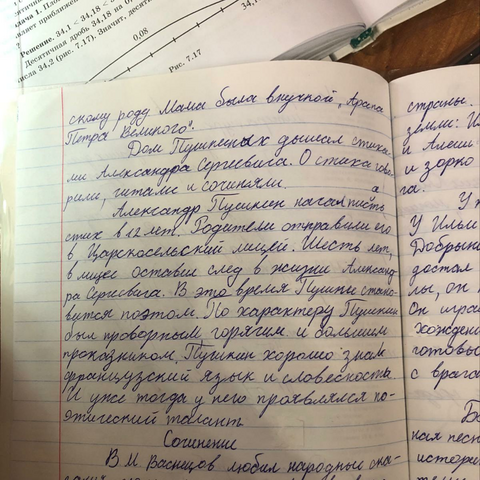 дача 1. Пло
приближе
Решение. 34,1 < 34,18 <
Десятичная дробь 34,18 на 0,
числа 34,2 (рис. 7.17). Значит, десят
0,08
34,1
Рис. 7.17
скому роду Мама была внучкой „Арапа
Петра Великого".
Дом Пушкиных дышал стиха-
ми Александра Сергевича. О стихах гово
рили, читали и сочиняли.
Александр Пушкин начал писать
стих в 12 лет. Родители отправили его
в Царскосельский лицей. Шесть лет,
в лицее оставил след в жизни Александ
ра Сергевича. В это время Пушкин стано-
вится поэтом. По характеру Пушкин
был проворным, горячим и большим
проказником, Пушкин хорошо знал
французский язык и словесность.
И уже тогда у него проявлялся по-
этический талант
Сочинение
В. М. Васнецов любил народные ска-
страны.
земли: И
и Алеши
и зорко
га.
У Ильи
Добрыни
достал
лы, он
Он игра
хожден
готовы
с врага
ная песн
истори